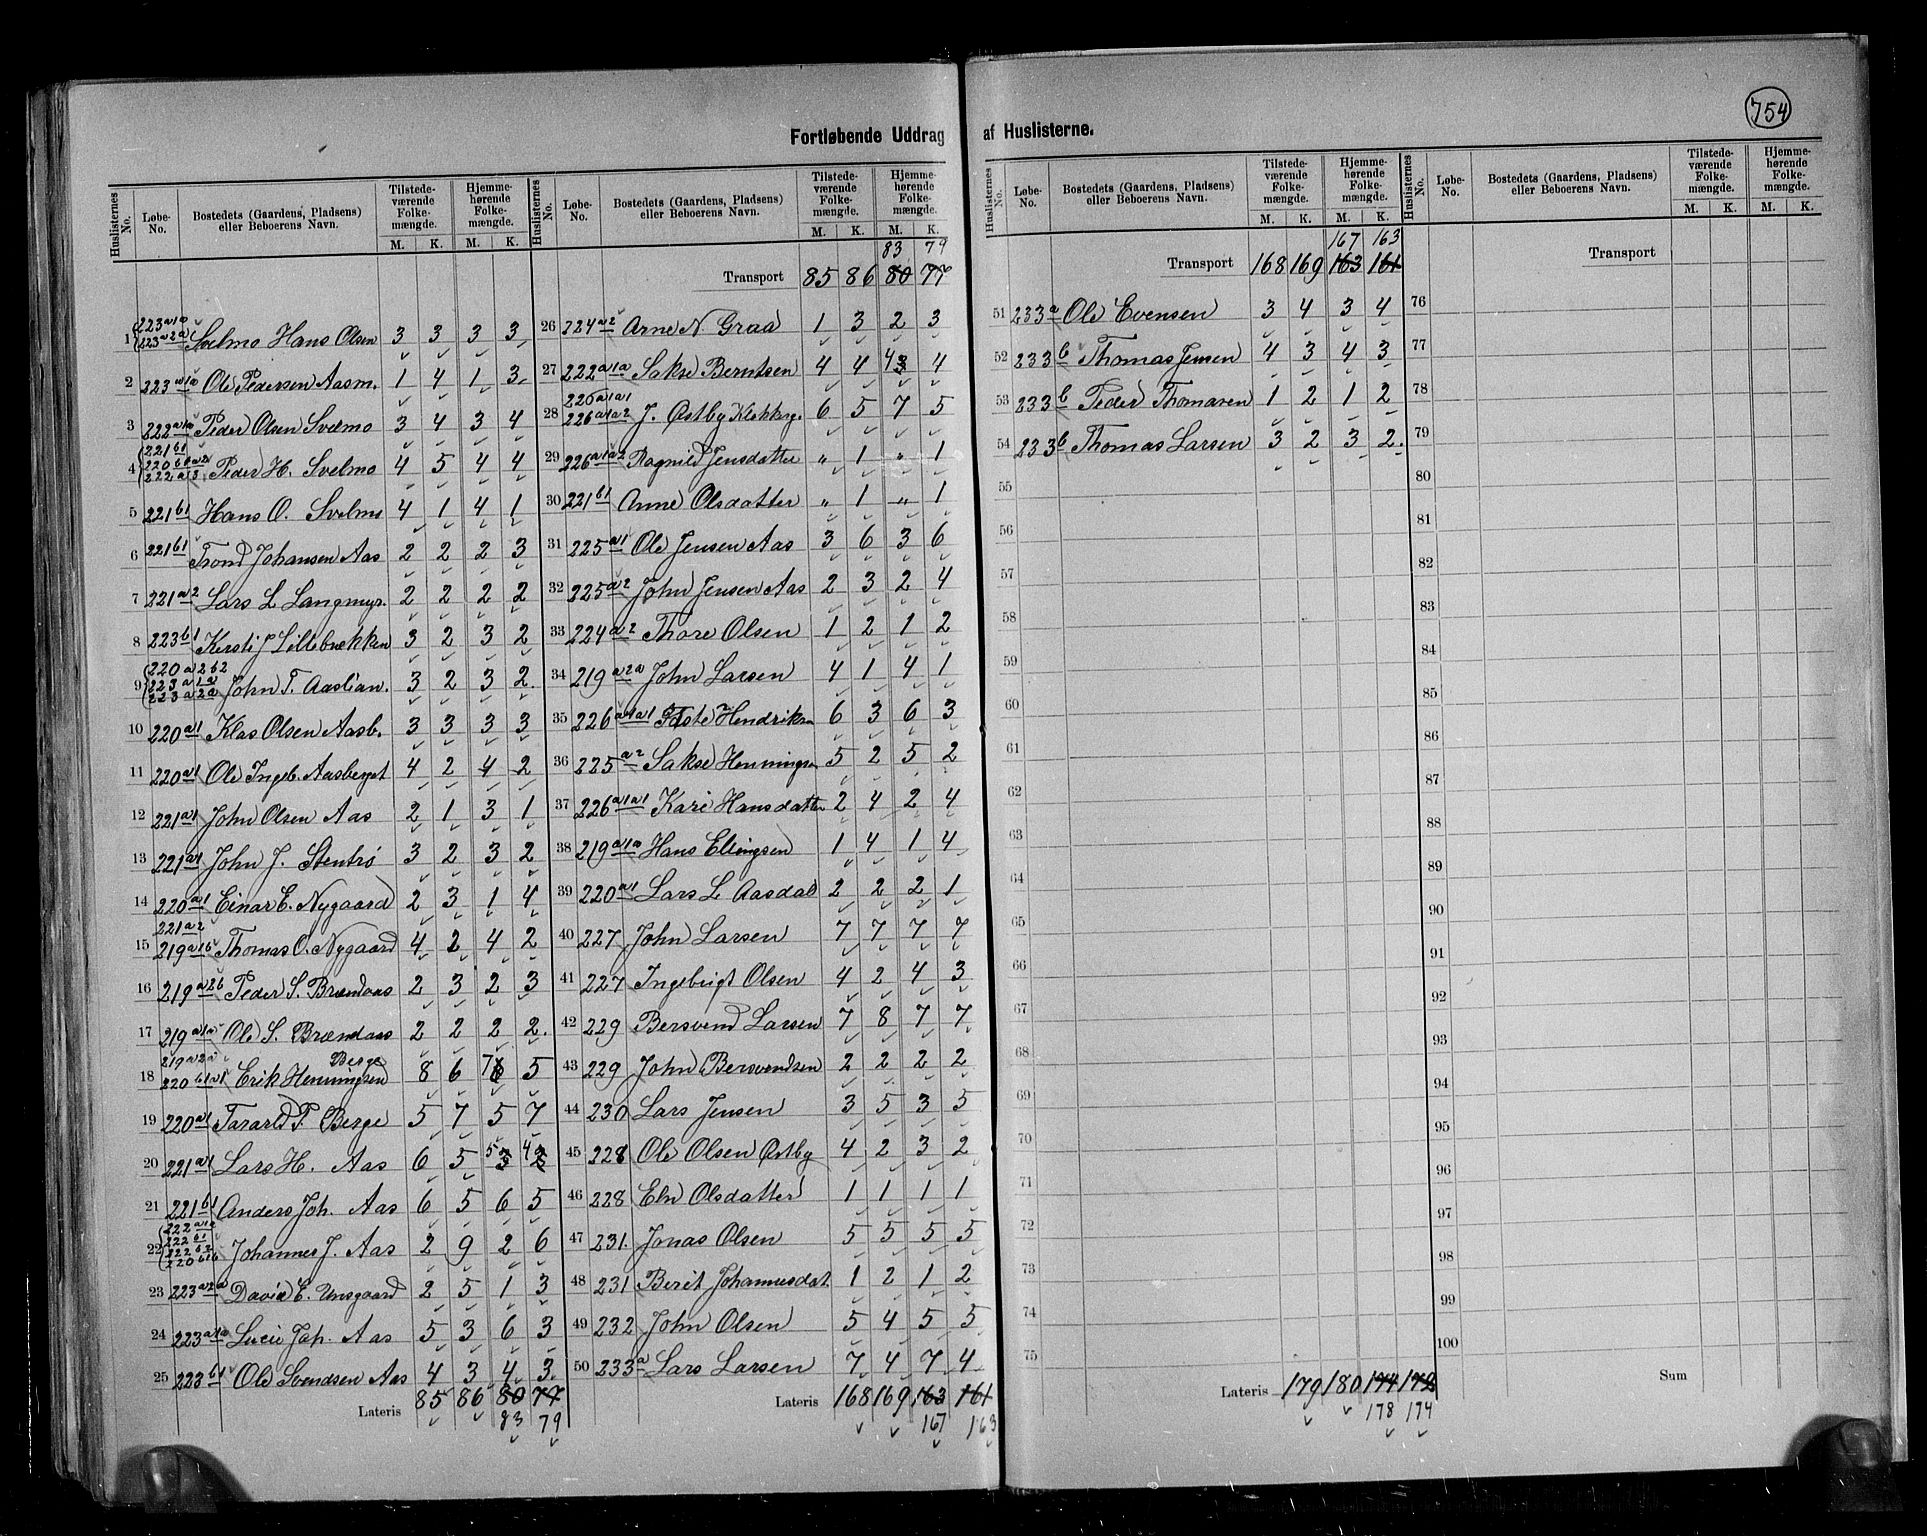 754
Fortløbende Uddrag af Huslisterne.
Huslisternes No. Løbe-No. Bostedets (Gaardens, Pladsens) eller Beboerens Navn. Tilstedeværende Folkemængde. M. K. Hjemmehørende Folkemængde. M. K.
1 223 a1a 223 a2a Svelmo Hans Olsen 3 3 3 3
2 223 a1a Ole Pedersen Aasm. 1 4 1 3
3 222 a1a Peder Olsen Svelmo 3 4 3 4
4 221 b1 222 a3 Peder H. Svelmo 4 5 4 4
5 221 b1 Hans O. Svelmo 4 1 4 1
6 221 b1 Trond Johansen Aas 2 2 2 3
7 221 a2 Lars L Langmyr. 2 2 2 2
8 223 b1 Kersti J Lillebækken 3 2 3 2
9 220 a2 b2 223 a1a 223 a2a John T. Aaslian. 3 2 3 2
10 220 a1 Klas Olsen Aasb. 3 3 3 3
11 220 a1 Ole Ingeb. Aasberget 4 2 4 2
12 221 a1 John Olsen Aas 2 1 3 1
13 221 a1 John J. Stentrø 3 2 3 2
14 220 a1 Einar E. Nygaard 2 3 1 4
15 221 a2 219 a1b Thomas O. Nygaard 4 2 4 2
16 219 a2b Peder S. Brændaas 2 3 2 3
17 219 a1a Ole S. Brændaas 2 2 2 2
18 219 a2a 220 b1a1 Erik Henningsen Berge 8 6 7 6 5
19 220 a1 Tarald P. Berge 5 7 5 7
20 221 a1 Lars H. Aas 6 5 5 3 4 2
21 221 b1 Anders Joh. Aas 6 5 6 5
22 222 a1a 222 b1 222 b2 220 b1b Johannes J. Aas 2 9 2 6
23 223 a2a David E. Unsgaard 2 5 1 3
24 223 a1a Lucie Joh. Aas 5 3 6 3
25 223 b1 Ole Svendsen Aas 4 3 4 3
Lateris 85 86 80 77
83 79
Huslisternes No. Løbe-No. Bostedets (Gaardens, Pladsens) eller Beboerens Navn. Tilstedeværende Folkemængde. M. K. Hjemmehørende Folkemængde. M. K.
83 79
Transport 85 86 80 77
26 224 a2 Arne N Graa 1 3 2 3
27 222 a1a Sakse Berntsen 4 4 4 3 4
28 226 a1a1 226 a1a2 J. Østby Klokkerg. 6 5 7 5
29 226 a1a2 Ragnild Jensdatter " 1 " 1
30 221 b1 Anne Olsdatter " 1 " 1
31 225 a1 Ole Jensen Aas 3 6 3 6
32 225 a2 John Jensen Aas 2 3 2 4
33 224 a2 Thore Olsen 1 2 1 2
34 219 a2a John Larsen 4 1 4 1
35 226 a1a1 Hendriksen 6 3 6 3
36 225 a2 Sakse Henningsen 5 2 5 2
37 226 a1a1 Kari Hansdatter 2 4 2 4
38 219 a1a Hans Ellingsen 1 4 1 4
39 220 a1 Lars L Aasdal 2 2 2 1
40 227 John Larsen 7 7 7 7
41 227 Ingebrigt Olsen 4 2 4 3
42 229 Bersvend Larsen 7 8 7 7
43 229 John Bersvendsen 2 2 2 2
44 230 Lars Jensen 3 5 3 5
45 228 Ole Olsen Østby 4 2 3 2
46 228 Eln Olsdatter 1 1 1 1
47 231. Jonas Olsen 5 5 5 5
48 231 Berit Johannesdat. 1 2 1 2
49 232 John Olsen 5 4 5 5
50 233 a Lars Larsen 7 4 7 4
Lateris 168 169 163 161
167 163
Huslisternes No. Løbe-No. Bostedets (Gaardens, Pladsens) eller Beboerens Navn. Tilstedeværende Folkemængde. M. K. Hjemmehørende Folkemængde. M. K.
167 163
Transport 168 169 163 161
51 233 a Ole Evensen 3 4 3 4
52 233 b Thomas Jensen 4 3 4 3
53 233 b Peder Thomasen 1 2 1 2
54 233 b Thomas Larsen 3 2 3 2.
55
56
57
58
59
60
61
62
63
64
65
66
67
68
69
70
71
72
73
74
75
Lateris 179 180 174 172
178 174
Huslisternes No. Løbe-No. Bostedets (Gaardens, Pladsens) eller Beboerens Navn. Tilstedeværende Folkemængde. M. K. Hjemmehørende Folkemængde. M. K.
Transport
76
77
78
79
80
81
82
83
84
85
86
87
88
89
90
91
92
93
94
95
96
97
98
99
100
Sum